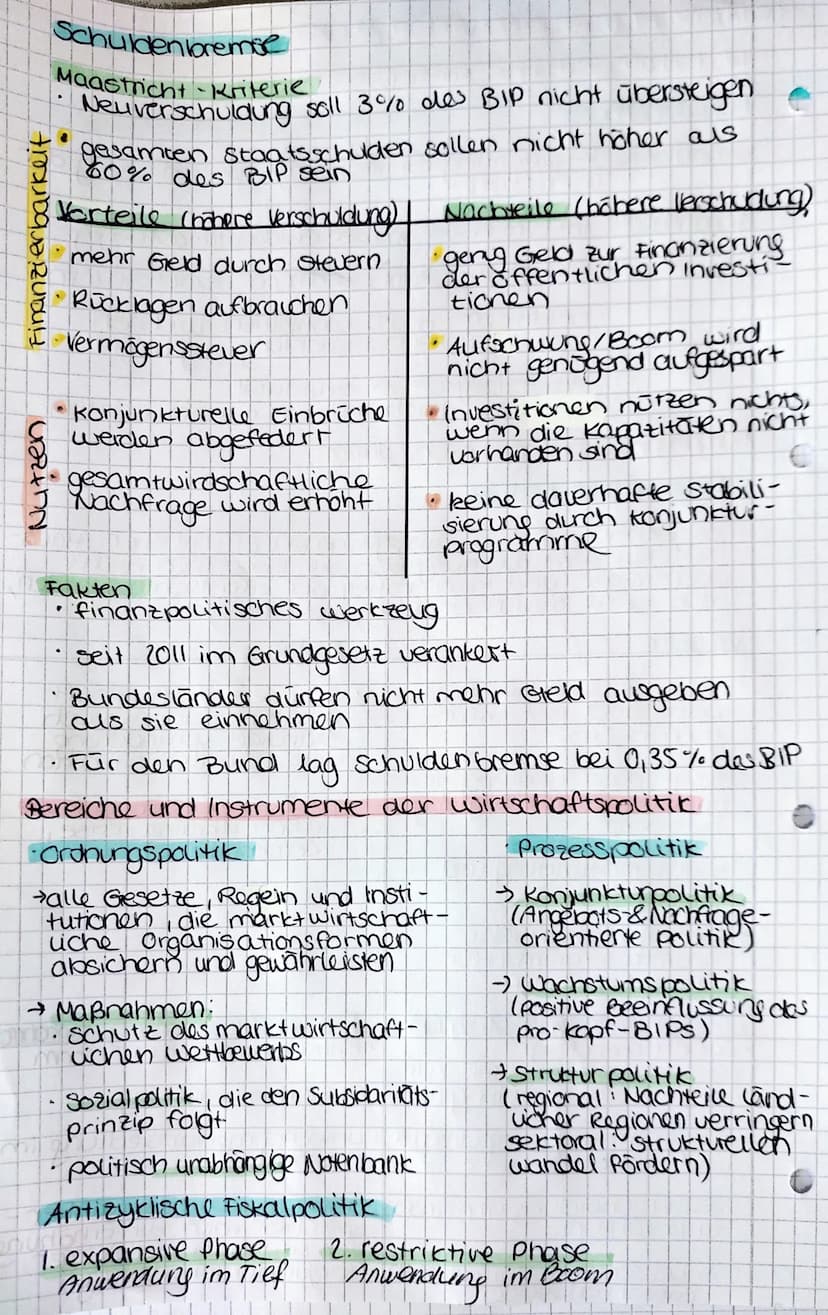 Schuldenbremse
Maastricht-Kriterie
· Neuverschuldung soll 3% des BIP nicht übersteigen
· gesamten Staatsschulden sollen nicht höher als
60% des BIP sein
Finanzierbarkeit
Vorteile (höhere Verschuldung)
· mehr Geld durch Steuern
· Rücklagen aufbrauchen
· Vermögenssteuer
Nutzen
· Konjunkturelle Einbrüche
werden abgefedert
· gesamtwirdschaftliche
Nachfrage wird erhöht
Nachteile (höhere Verschudung)
· genug Geld zur Finanzierung
der öffentlichen Investi-
tionen
· Aufschwung/Boom wird
nicht genügend aufgespart
· Investitionen nützen nichts,
wenn die Kapazitäten nicht
vorhanden sind
· keine dauerhafte Stabili-
sierung durch Konjunktur-
programme
Fakten
· finanzpolitisches Werkzeug
· seit 2011 im Grundgesetz verankert
· Bundesländer dürfen nicht mehr Geld ausgeben
als sie einnehmen
· Für den Bund lag Schuldenbremse bei 0,35% des BIP
Bereiche und Instrumente der Wirtschaftspolitik
· Ordnungspolitik
→ alle Gesetze, Regeln und Insti-
tutionen, die marktwirtschaft-
liche Organisationsformen
absichern und gewährleisten
→ Maßnahmen:
· Schutz des marktwirtschaft-
lichen Wettbewerbs
· Sozialpolitik, die den Subsidaritäts-
prinzip folgt
· politisch unabhängige Notenbank
· Prozesspolitik
→ Konjunkturpolitik
(Angebots-&Nachfrage-
orientierte Politik)
→ Wachstumspolitik
(positive Beeinflussung des
pro-Kopf-BIPs)
→ Strukturpolitik
(regional: Nachteile länd-
licher Regionen verringern
sektoral: strukturellen
Wandel fördern)
Antizyklische Fiskalpolitik
1. expansive Phase
Anwendung im Tief
2. restriktive Phase
Anwendung im Boom